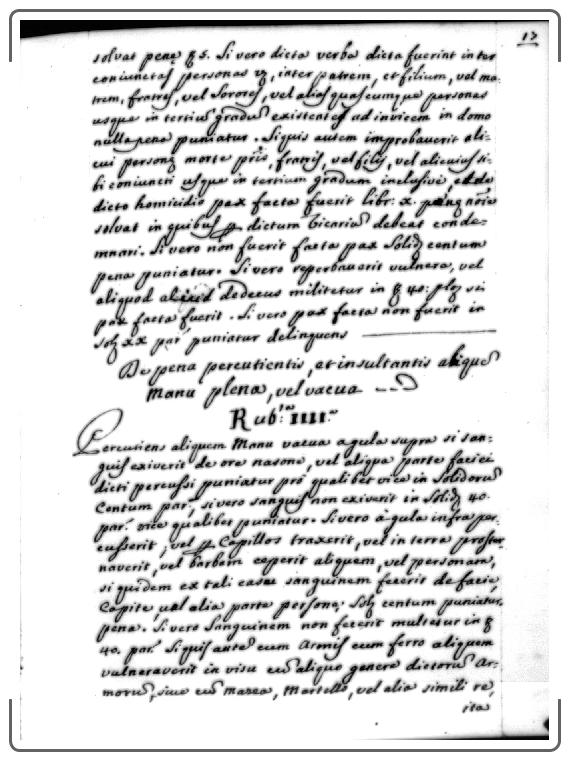 17
solvat penę ꝶ 5. Si vero dicta verba dicta fuerint inter
coniunctas personas vz, inter patrem, et filium, vel ma-
trem, fratres, vel Sorores, vel alias quascumque personas
usque in tertiũ gradũ existentes ad invicem in domo
nulla pena puniatur. Siquis autem improbaverit ali-
cui personę morte pr̃is, fratris, vel filij, vel alicuius si-
bi coniuncti usque in tertium gradum inclusive,
dicto homicidio pax facta fuerit libr. x.
solvat in quibus ꝑ dictum Vicariũ debeat conde-
mnari. Si vero non fuerit facta pax Solid centum
pena puniatur. Si vero reperbaverit vulnera, vel
aliquod dedecus militetur in ꝶ 40: si
pax facta fuerit. Si vero pax facta non fuerit in
sol xx par puniatur delinquens
De pena percutientis, et insultantis aliquẽ
Manu plena, vel vacua
Rub. IIII.
Percutiens aliquem Manu vacua a gula supra si san-
guis exiverit de ore nasone, vel aliqua parte faciei
dicti percussi puniatur pro qualibet vice in Solidorũ
Centum par, si vero sanguis non exiverit in Solid 40.
par. vice qualibet puniatur. Si vero à gula infra per-
cusserit, vel ꝑ Capillos traxerit, vel in terra proster-
naverit, vel barbam ceperit aliquem, vel personam,
si quidem ex tali casu sanguinem fecerit de facie,
Capite, vel alia parte personę. Sol centum puniatur
pena. Si vero Sanguinem non fecerit multetur in ꝶ
40. par. Si quis autẽ cum Armis cum ferro aliquem
vulneraverit in visu cũ aliquo genere dictorũ Ar-
morũ, sive cũ Mazza, Martello, vel alia simili re,
ita